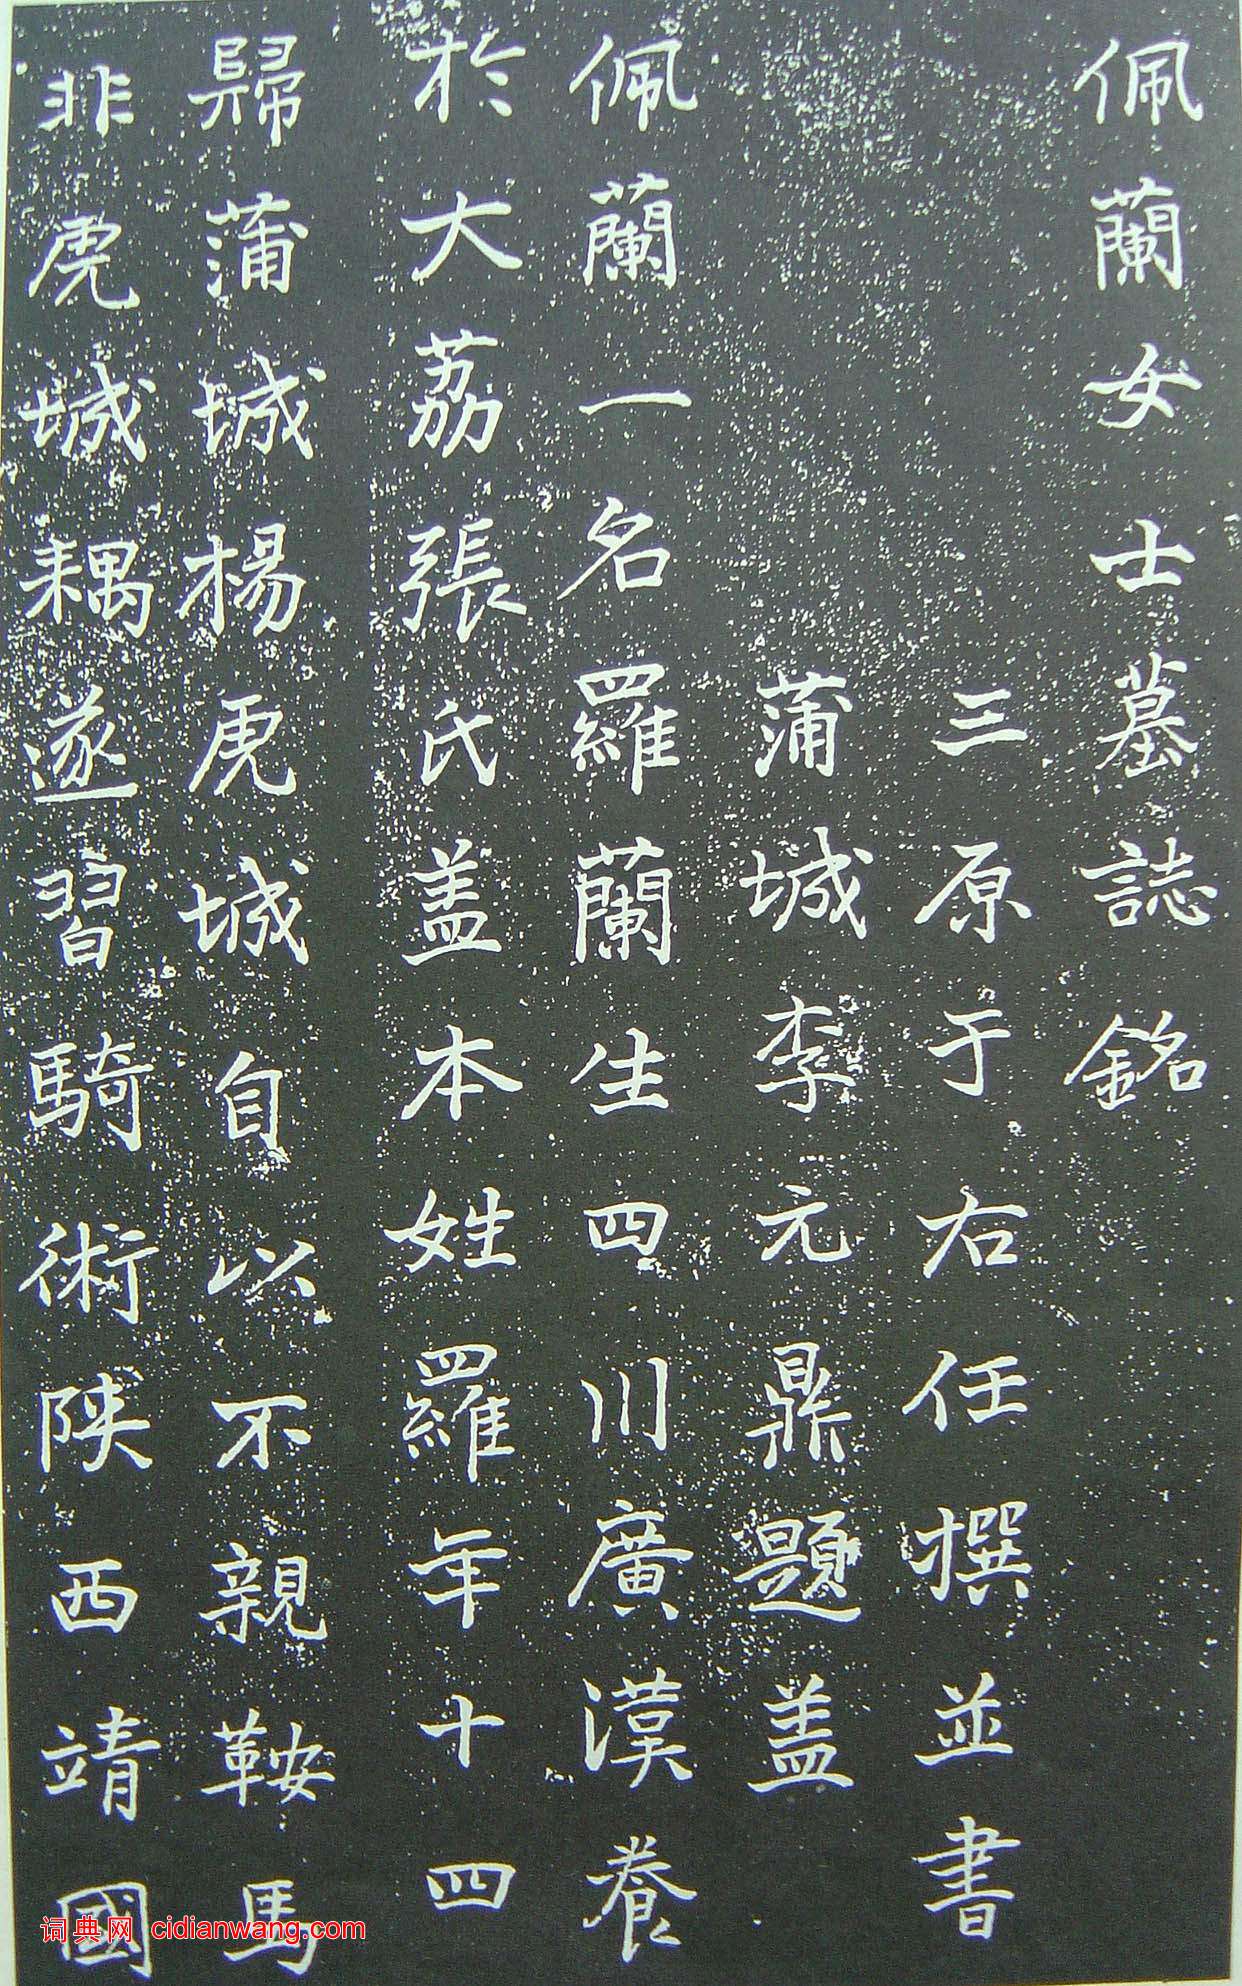 佩蘭女士墓誌銘
三原于右任撰並書
蒲城李元鼎題盖
佩蘭一名羅蘭生四川廣漢養
於大荔張氏盖本姓羅年十四
歸蒲城楊虎城自以不親鞍馬
非虎城耦遂習騎術陝西靖國
词典网 cidianwang.com